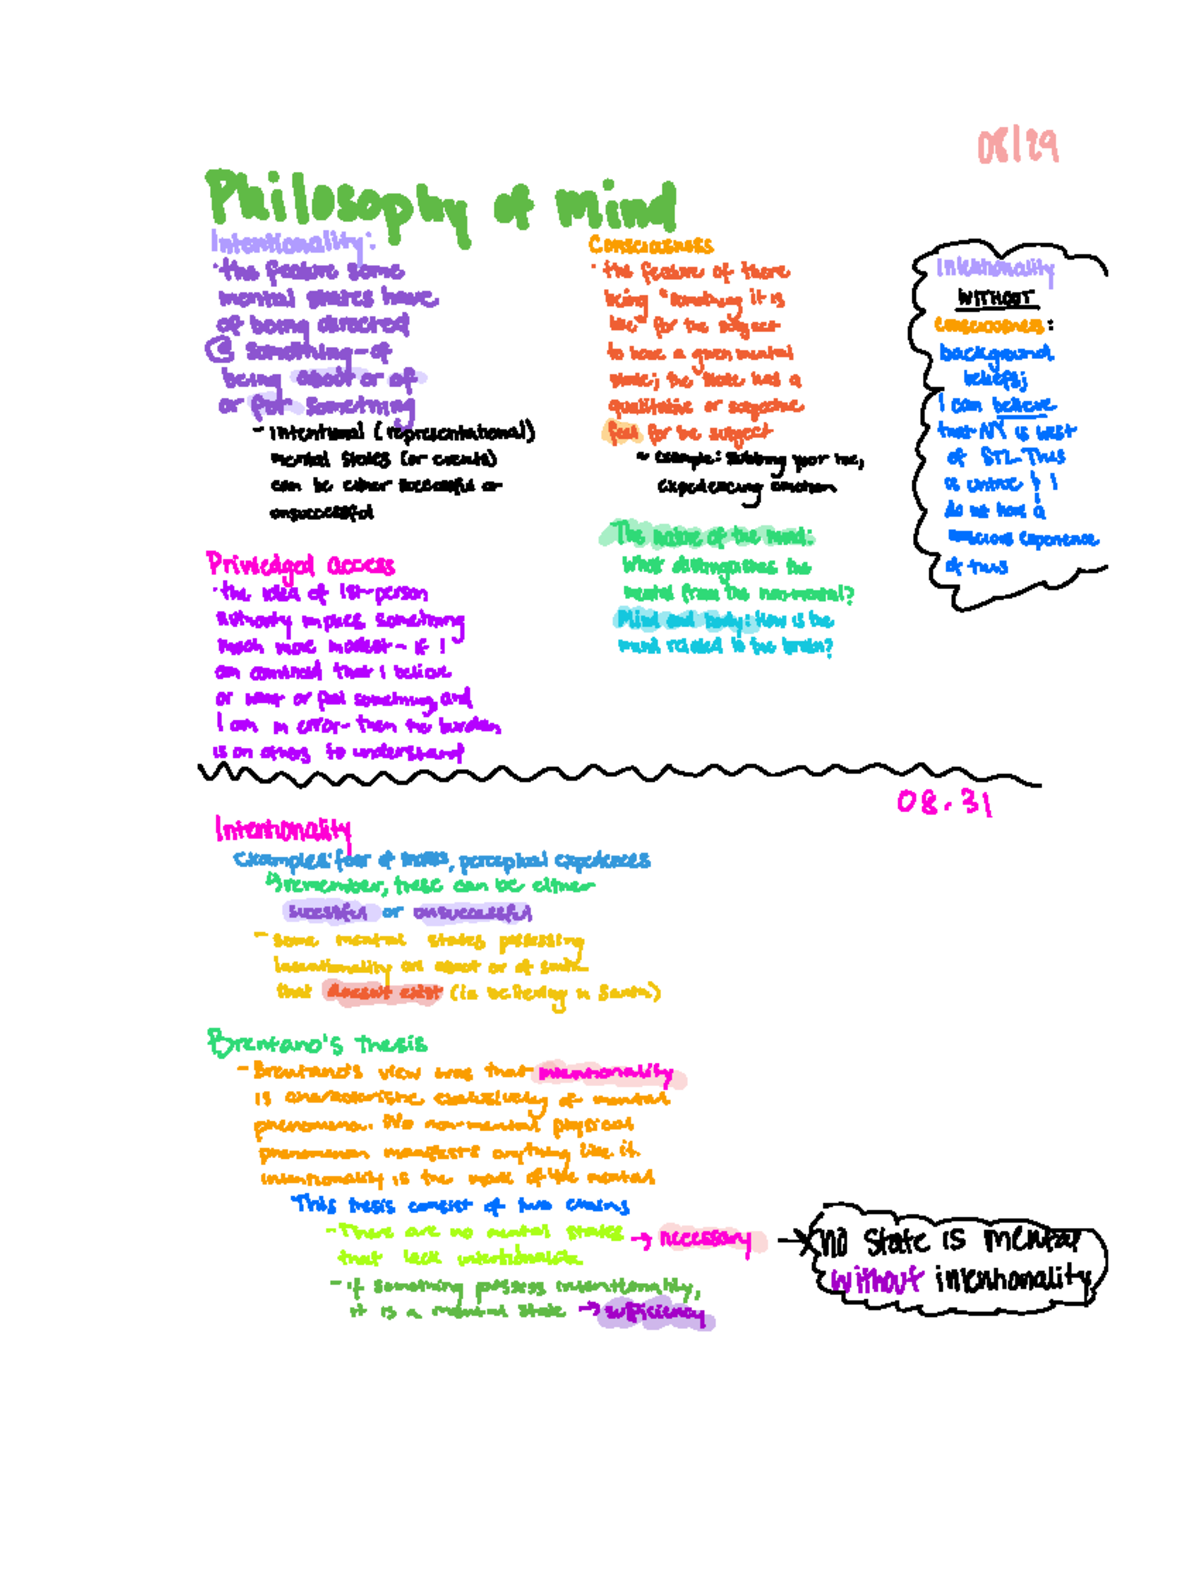 08/29
Philosophy of mind
Intentionality:
·the feature some
mental states have
of being directed
@ something-of
being about or of
or for something
- intentional (representational)
mental states (or events)
can be either successful or
unsuccessful
Priviledged access
·the idea of 1st-person
authority implies something
much more modest- if I
am convinced that I believe
or want or feel something, and
I am in error- then the burden
is on others to understand
Consciousness
·the feature of there
being "something it is
like" for the subject
to have a given mental
state; the state has a
qualitative or subjective
feel for the subject
~ example: stubbing your toe,
experiencing emotion
The nature of the mind:
what distinguishes the
mental from the non-mental?
Mind and body: How is the
mind related to the brain?
Intentionality
WITHOUT
consciousness:
background
beliefs;
I can believe
that NY is west
of STL. This
is untrue & I
do not have a
conscious experience
of this
08.31
Intentionality
examples: fear of , perceptual experiences
remember, these can be either
sucessful or unsuccessful
- some mental states possessing
intentionality are about or of smth
that doesn't exist (ie believing in Santa)
Brentano's thesis
- Brentano's view was that intentionality
is characteristic exclusively of mental
phenomena. No non-mental physical
phenomenon manifests anything like it.
intentionality is the mark of the mental
This thesis consist of two claims
- There are no mental states → necessary → no state is mental
that lack intentionality without intentionality
- if something possess intentionality,
it is a mental state → sufficiency